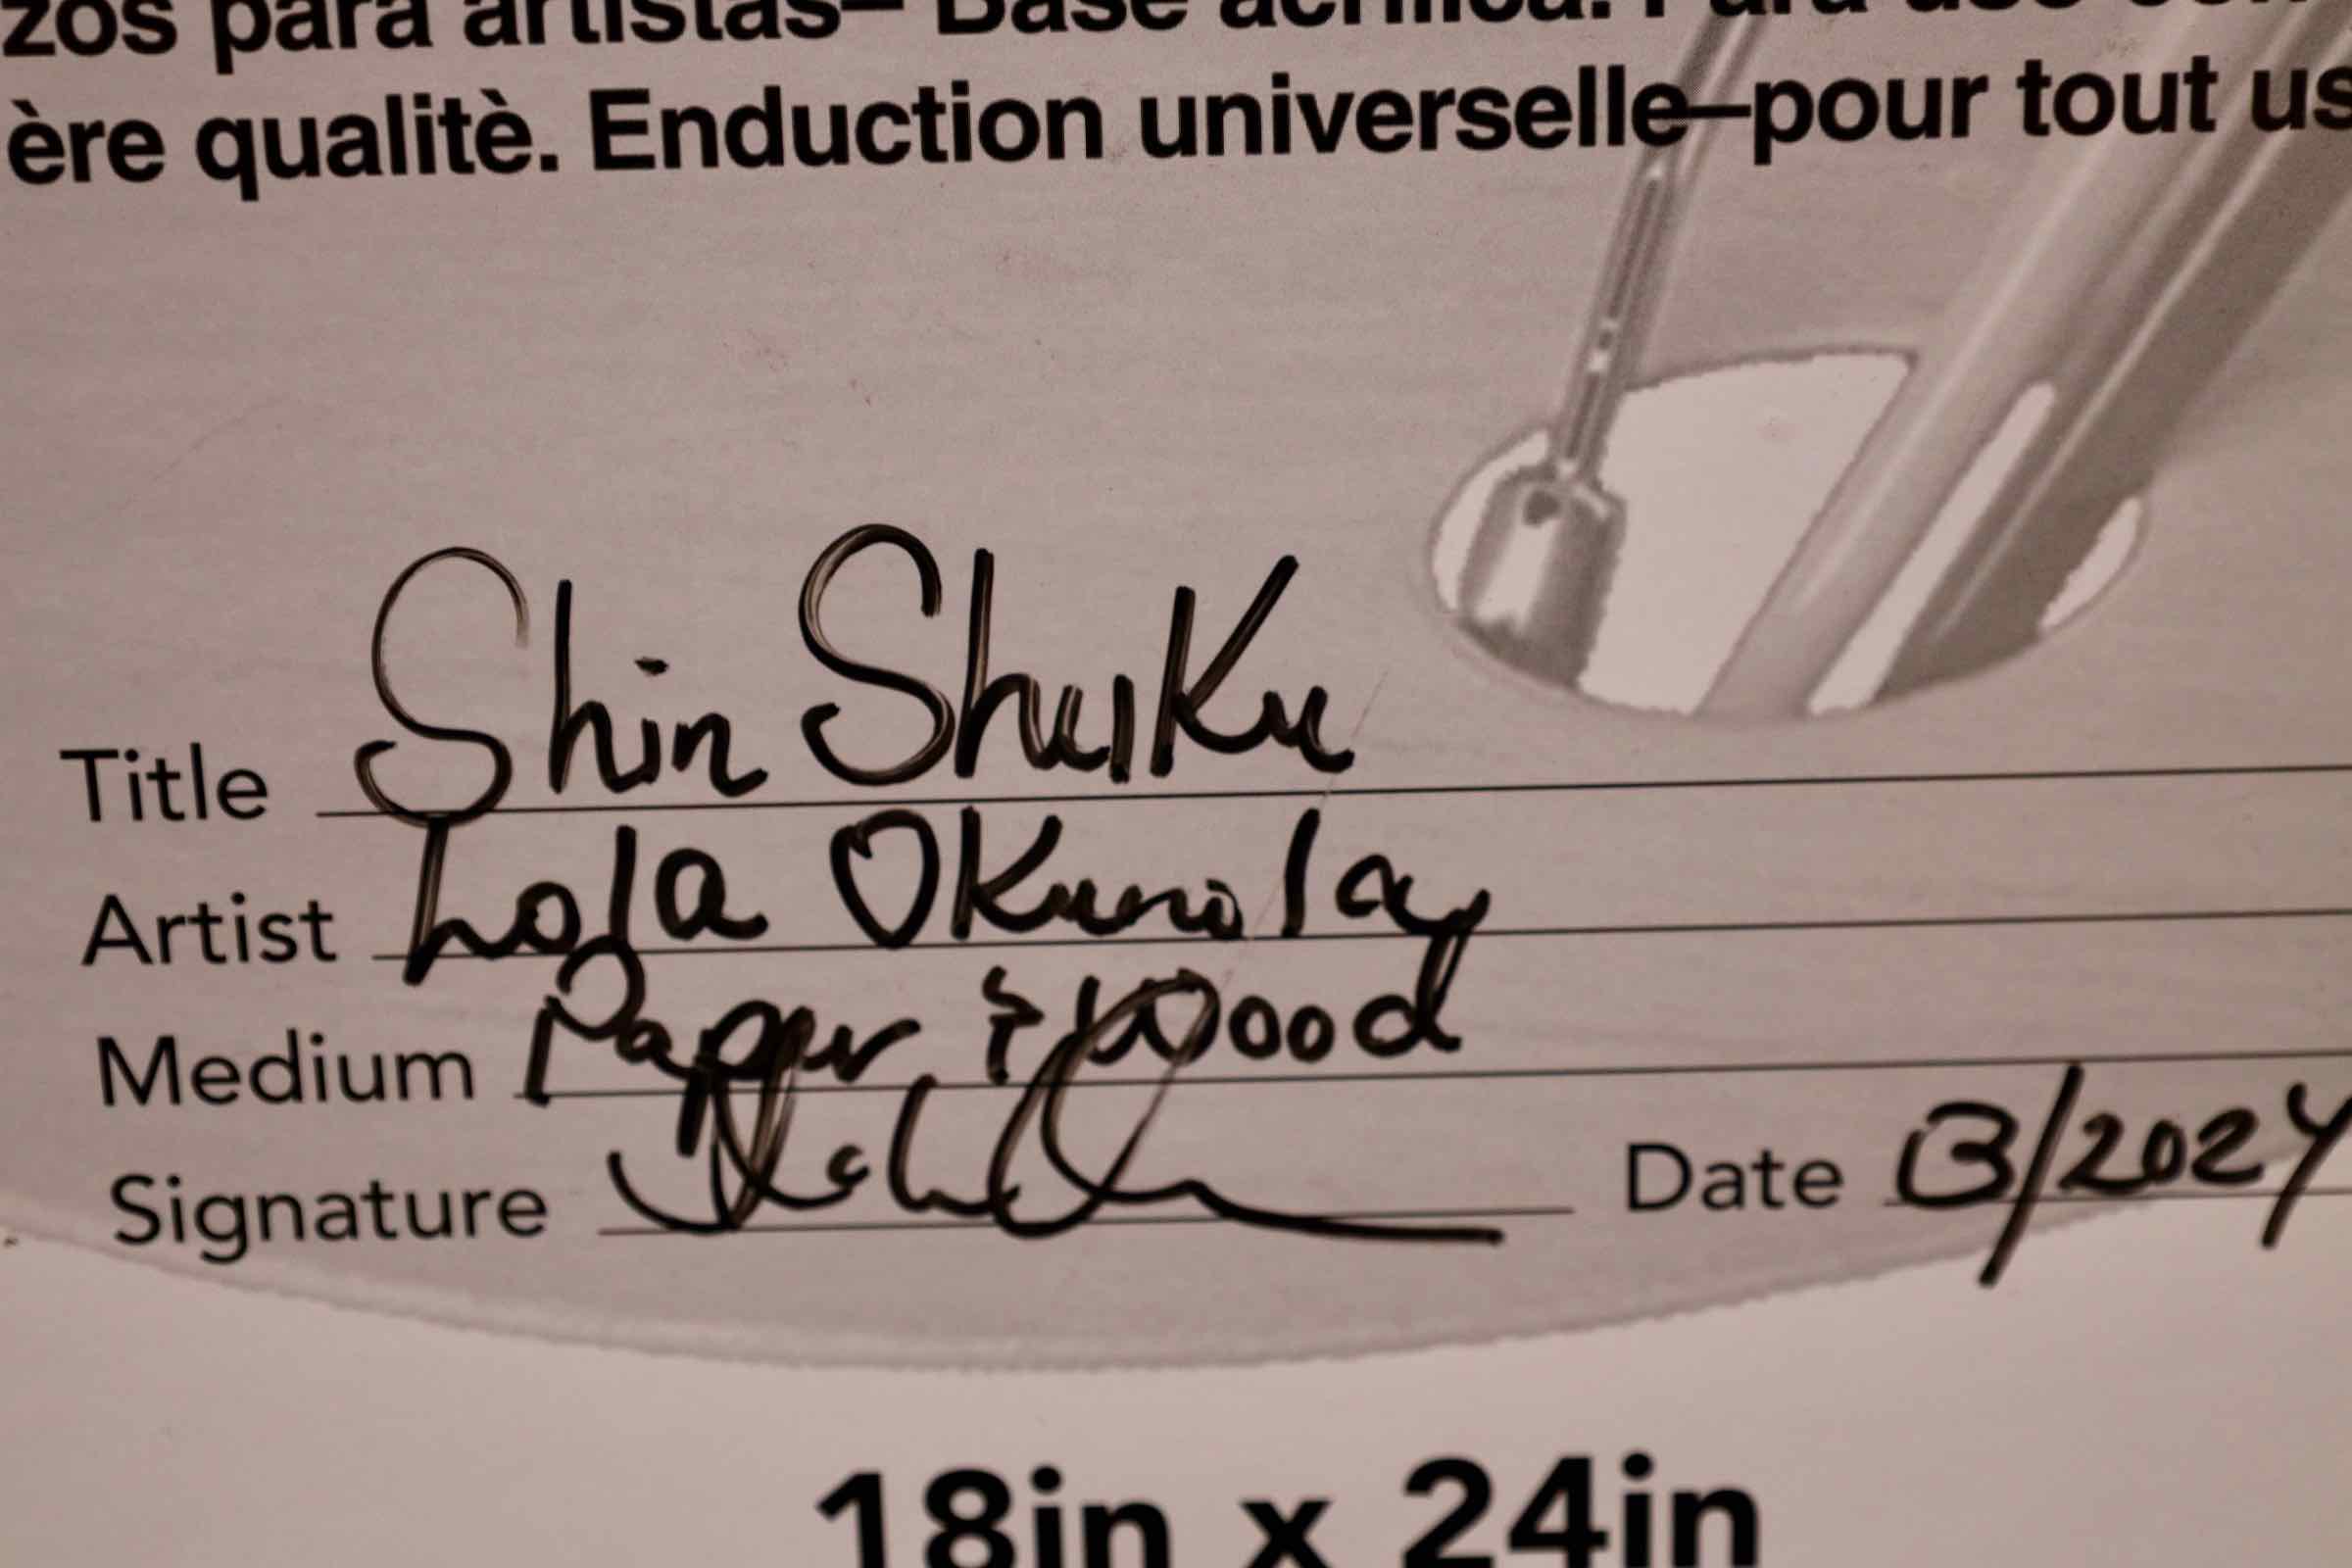 zos para artistas– Base acrílica. Para uso con
ère qualitè. Enduction universelle–pour tout us
Title Shin Shuku
Artist Lola Okunola
Medium Paper & Wood
Signature
Date 3/2024
18in x 24in